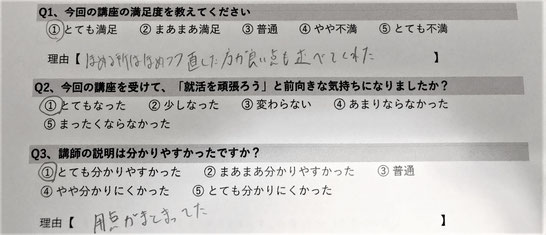 Q1、今回の講座の満足度を教えてください
①とても満足 ②まあまあ満足 ③普通 ④やや不満 ⑤とても不満
理由【 ほめる所はほめつつ直した方が良い点も述べてくれた 】
Q2、今回の講座を受けて、「就活を頑張ろう」と前向きな気持ちになりましたか？
①とてもなった ②少しなった ③変わらない ④あまりならなかった
⑤まったくならなかった
Q3、講師の説明は分かりやすかったですか？
①とても分かりやすかった ②まあまあ分かりやすかった ③普通
④やや分かりにくかった ⑤とても分かりにくかった
理由【 用点がまとまってた 】